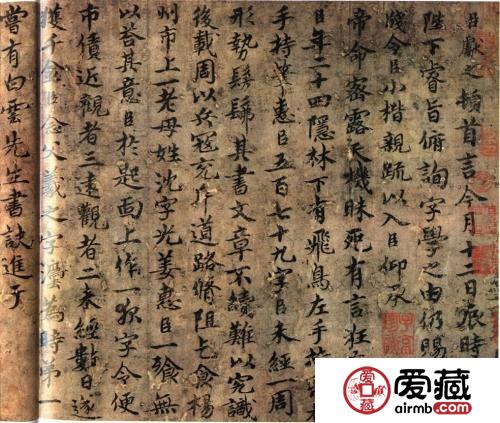 臣獻之頓首言今月十二日辰時
陛下睿旨俯詢字學之由仍賜
牋令臣小楷親疏以入臣仰承
帝命密露天機昧死有言狂
臣年二十四隱林下有飛鳥左手
手持筆惠臣五百七十九字臣未經一周
形勢髣髴其書文章不續難以究識
後載周以兵寇充斥道路脩阻乞食楊
州市上一老母姓沈字光姜惠臣一飡無
以荅其意臣於匙面上作一夜字令便
市債近觀者三遠觀者二未經數日遂
獲千金臣念父羲之字法為時第一
嘗有白雲先生書訣進于
爱藏
airmb.com